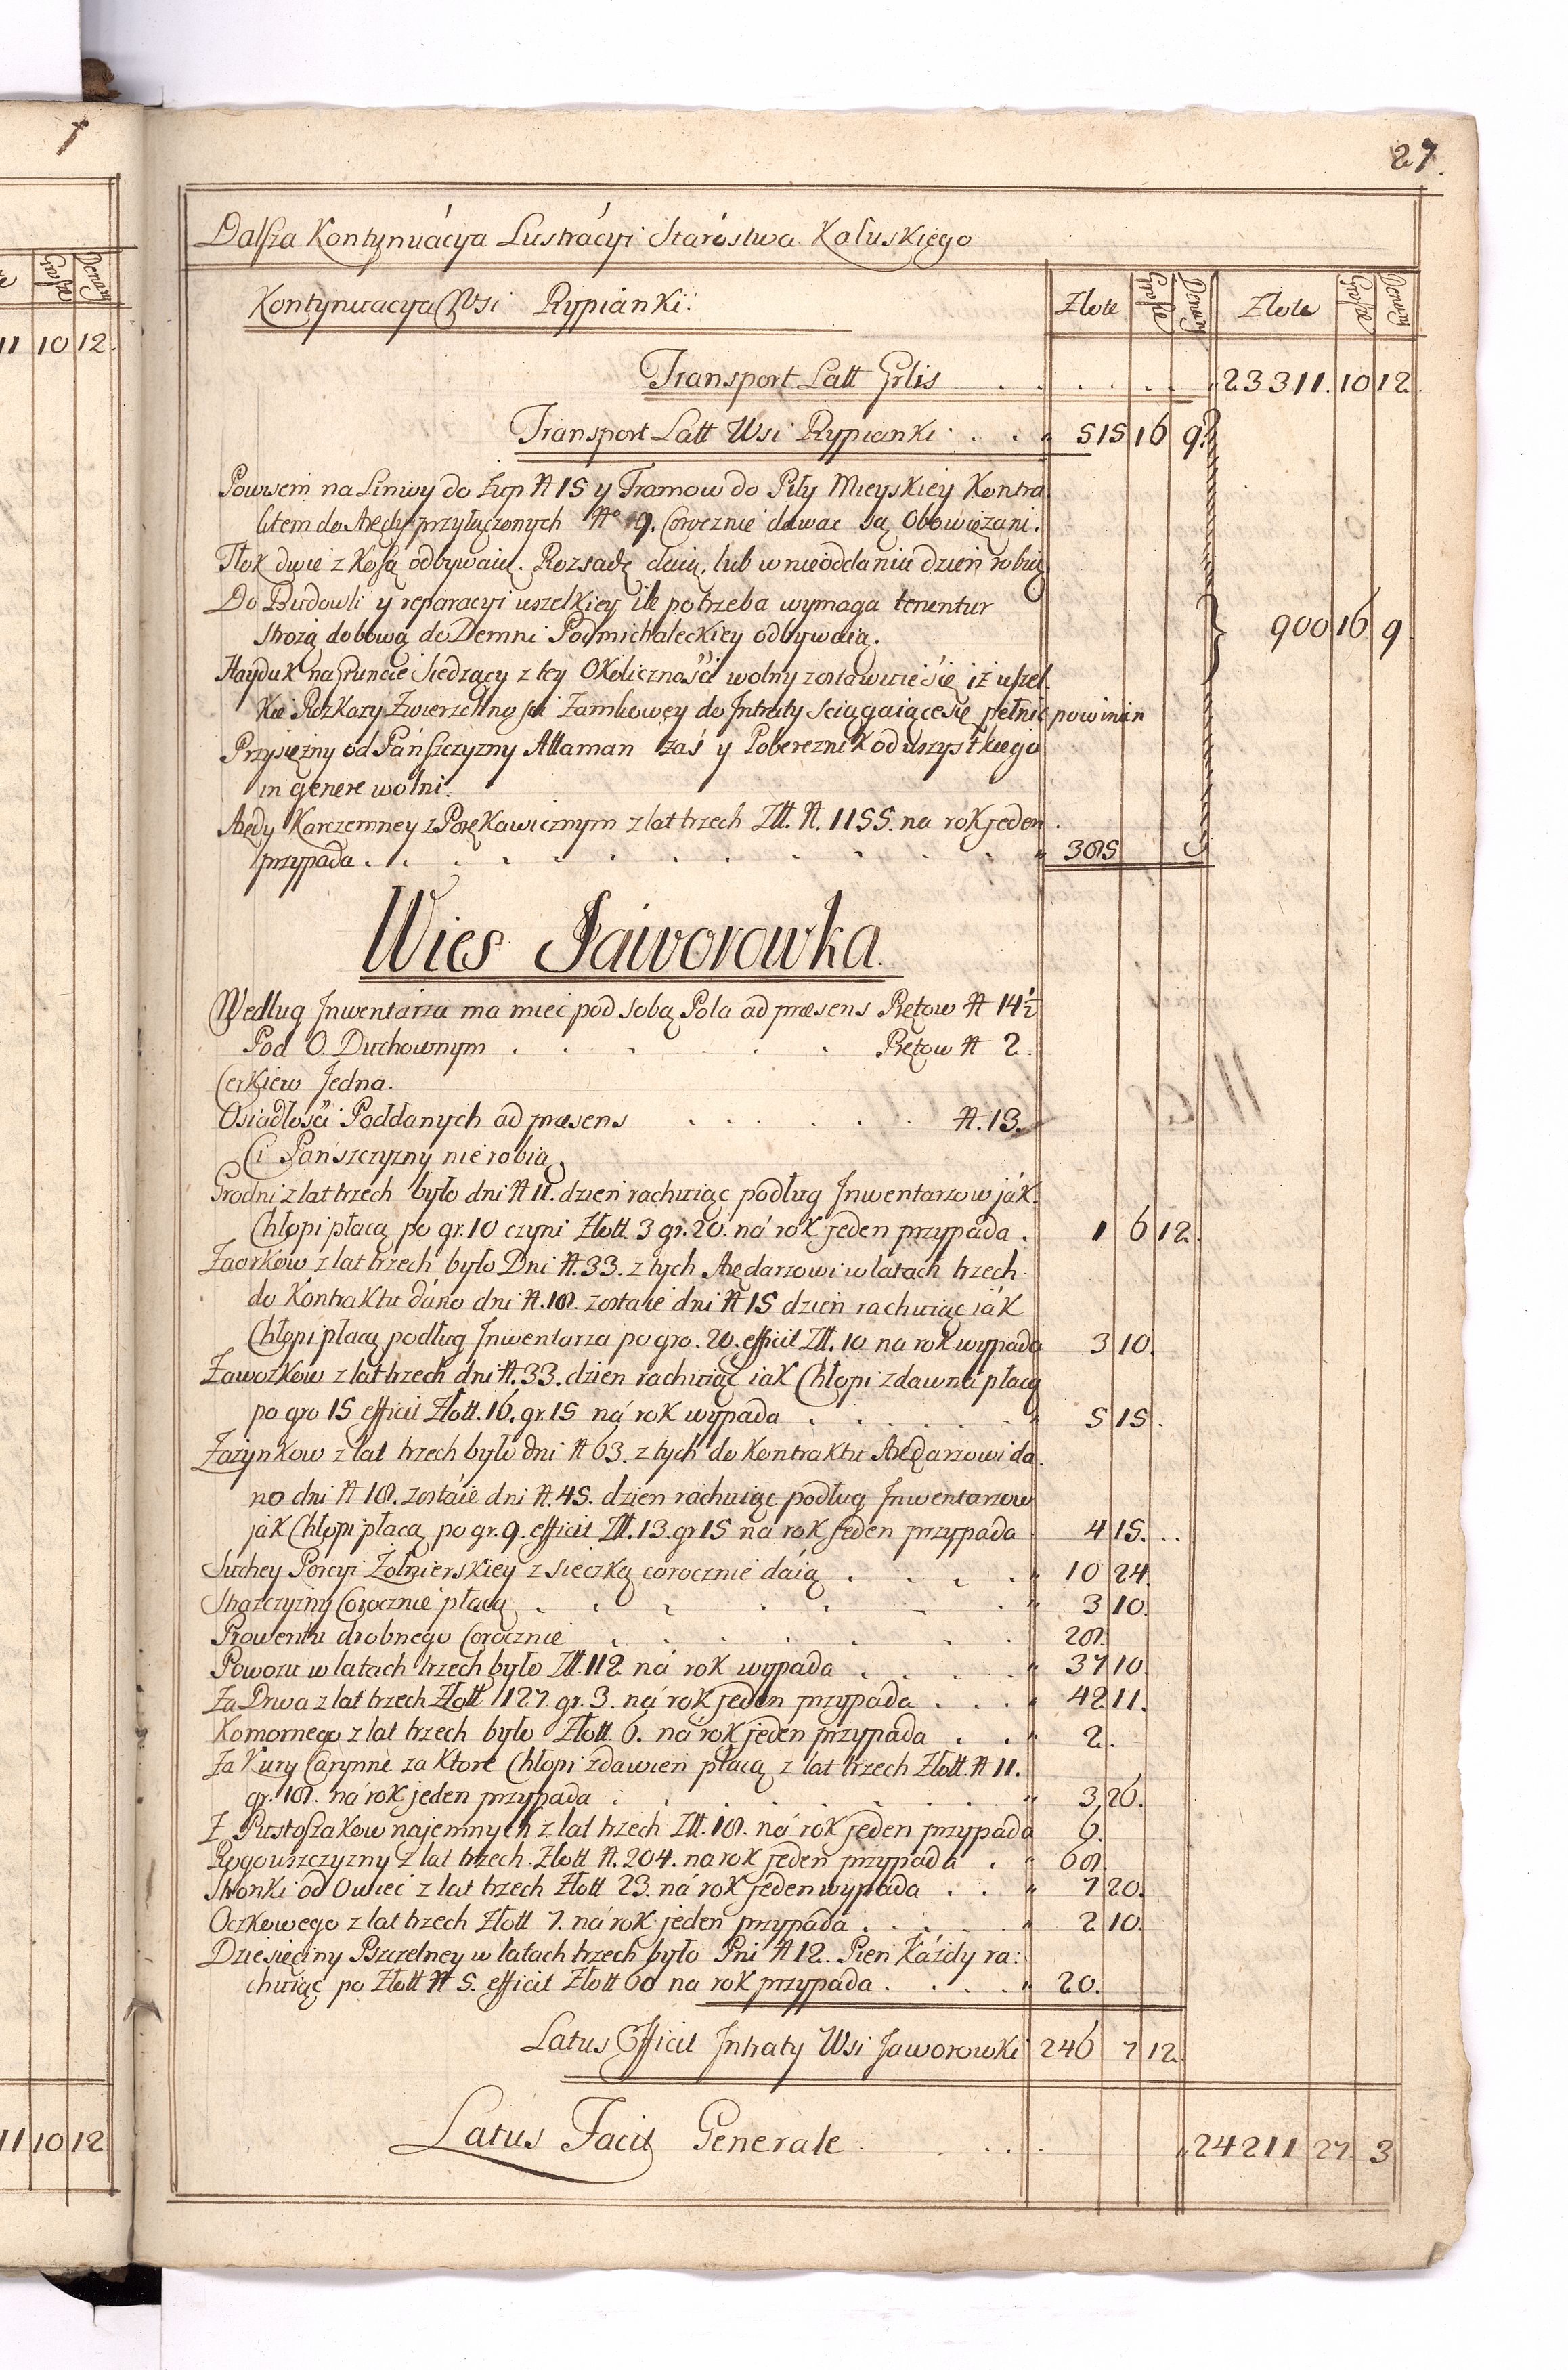 27.
Dalsza Kontynuácya Lustrácyi Starostwa Kałuskiego
Kontynuacya Wsi Rypianki: Złote Grosze Denary Złote Grosze Denary
Transport Latt Grlis . . . . . . 23311. 10 12.
Transport Latt Wsi Rypianki . . . 515 16 9
Powisem na Linwy do Żup № 15 y Tramow do Piły Mieyskiey Kontra
litem do Arędy przyłączonych № 9. Corocznie dawac są Obowięzani.
Tłok dwie z Kosą odbywaią. Rozsadę daią, lub w nieoddaniu dzień robią
Do Budowli y reparacyi wszelkiey ile potrzeba wymaga tenentur
Strożą dobową do Demni Podmichaleckiey odbywaią. 900 16 9
Hayduk na Gruncie Siedzący z tey Okolicznośći wolny zostawuie się iż wszel
kie Rozkazy Zwierzchności Zamkowey do Intraty sciągaiące się pełnić powinien
Przysiężny od Pańszczyzny Attaman zaś y Pobereznik od wszystkiego
in genere wolni.
Arędy Karczemney z Porękawicznym z lat trzech Złł. № 1155. na rok jeden
przypada . . . . . . . . . 385
Wies Jaworowka.
Według Inwentarza ma miec pod sobą Pola ad præsens Prętow № 14½
Pod O. Duchownym . . . . . . Prętow № 2.
Cerkiew Jedna.
Osiadłośći Poddanych ad præsens . . . . . . №. 13.
Ci Pańszczyzny nie robią.
Grodni z lat trzech było dni № 11. dzień rachuiąc podług Inwentarzow ják
Chłopi płacą po gr. 10 czyni Złott. 3 gr. 20. ná rok jeden przypada . 1 6 12.
Zaorkow z lat trzech było Dni №. 33. z tych Arędarzowi w latach trzech
do Kontraktu dáno dni №. 18. zostaie dni № 15 dzień rachuiąc iák
Chłopi płacą podług Inwentarza po gro. 20. efficit Złł. 10 na rok wypada 3 10.
Zawozkow z lat trzech dni №. 33. dzien rachuiąc iak Chłopi zdawna płacą
po gro 15 efficit Złott. 16. gr. 15 ná rok wypada . . . . . . 5 15.
Zazynkow z lat trzech było dni № 63. z tych do Kontraktu Arędarzowi da
no dni № 18. zostáie dni №. 45. dzien rachuiąc podług Inwentarzow
jak Chłopi płacą po gr. 9. efficit Złł. 13. gr 15 na rok jeden przypada 4 15. . .
Suchey Porcyi Żołnierskiey z sieczką corocznie dáią . . . . 10 24.
Strozczyzny Corocznie płacą . . . . . . . 3 10.
Prowentu drobnego Corocznie . . . . . . 28.
Powozu w latach trzech było Złł. 112 ná rok wypada . . . . 37 10.
Za Drwa z lat trzech Złott 127. gr. 3. ná rok jeden przypada . . . 42 11.
Komornego z lat trzech było Złott. 6. na rok jeden przypada . . 2.
Za Kury Carynne za Ktore Chłopi zdawien płacą z lat trzech Złott. № 11.
gr. 18. ná rok jeden przypada . . . . . . . . . 3 26.
Z Pustoszakow najemnych z lat trzech Złł. 18. ná rok jeden przypada 6.
Rogouszczyzny z lat trzech. Złott №. 204. na rok jeden przypada . 68.
Stronki od Owiec z lat trzech Złott 23. ná rok jeden wypada . . 7 20.
Oczkowego z lat trzech Złott 7. ná rok jeden przypada . . . . 2 10.
Dziesięciny Pszczelney w latach trzech było Pni № 12. Pień Każdy ra:
chuiąc po Złott № 5. efficit Złott 60 na rok przypada . . . . 20.
Latus Efficit Intraty Wsi Jaworowki 246 7 12.
Latus Facit Generale . . . . 24211 27. 3
Grosze Denary
11 10 12.
11 10 12